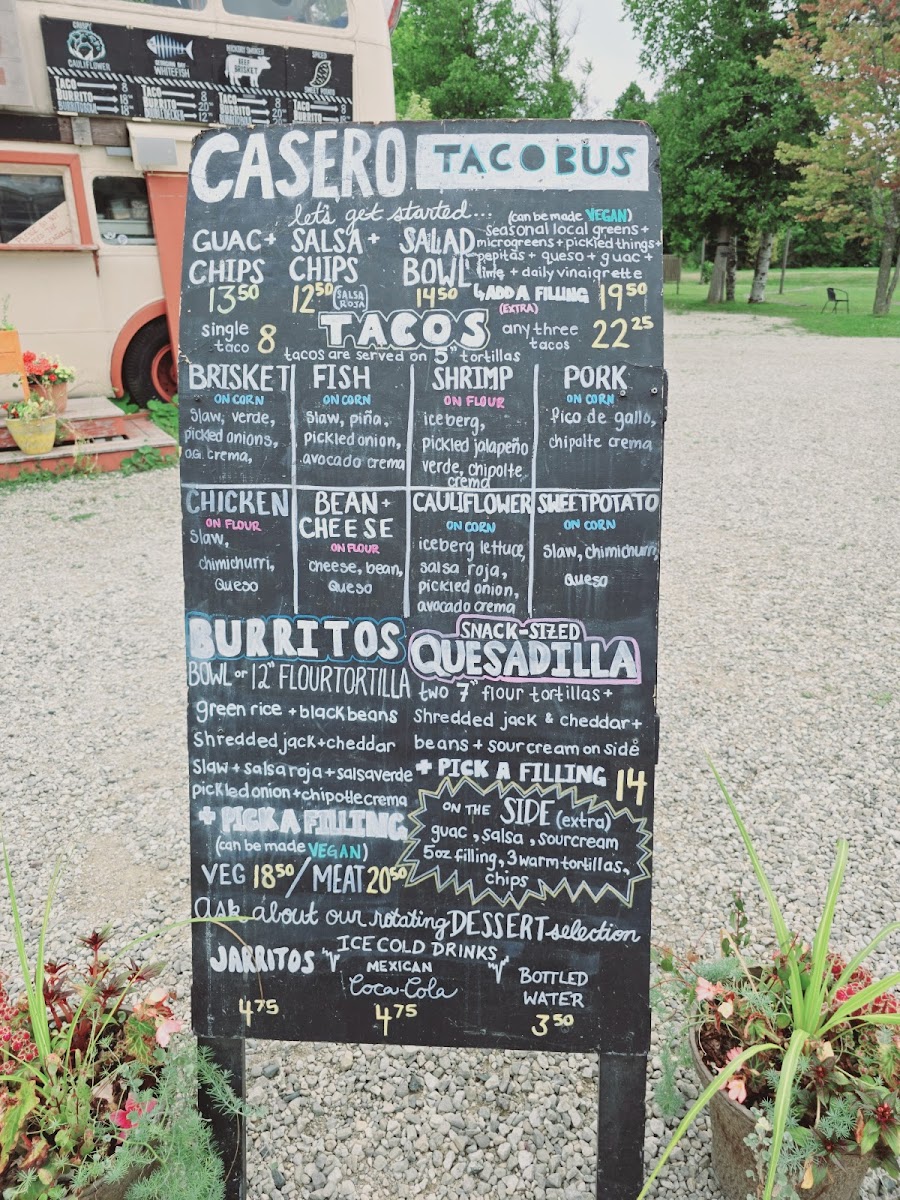 CRISPY
CAULIFLOWER
TACO 8
BURRITO
WHITEFISH
TACO 8
BURRITO
HICKORY SMOKED
BEEF BRISKET
TACO 8
BURRITO
SPICED
SWEET POTATO
TACO 8
BURRITO
CASERO TACO BUS
let's get started...
(can be made VEGAN)
GUAC + CHIPS 13 50
SALSA + CHIPS 12 50 SALSA ROJA
SALAD BOWL 14 50
seasonal local greens +
microgreens + pickled things +
pepitas + queso + guac +
lime + daily vinaigrette
ADD A FILLING 19 50
(EXTRA)
TACOS
single taco 8
any three tacos 22 25
tacos are served on 5" tortillas
BRISKET
ON CORN
slaw, verde,
pickled onions,
O.G. crema,
FISH
ON CORN
slaw, piña,
pickled onion,
avocado crema
SHRIMP
ON FLOUR
iceberg,
pickled jalapeño
verde, chipolte
crema
PORK
ON CORN
pico de gallo,
chipolte crema
CHICKEN
ON FLOUR
slaw,
chimichurri,
queso
BEAN +
CHEESE
ON FLOUR
cheese, bean,
queso
CAULIFLOWER
ON CORN
iceberg lettuce,
salsa roja,
pickled onion,
avocado crema
SWEET POTATO
ON CORN
slaw, chimichurri,
queso
BURRITOS
BOWL or 12" FLOUR TORTILLA
green rice + black beans
shredded jack + cheddar
slaw + salsa roja + salsa verde
pickled onion + chipotle crema
+ PICK A FILLING
(can be made VEGAN)
VEG 18 50 / MEAT 20 50
SNACK-SIZED
QUESADILLA
two 7" flour tortillas +
shredded jack & cheddar +
beans + sour cream on side
+ PICK A FILLING 14
ON THE SIDE (extra)
guac, salsa, sourcream
5oz filling, 3 warm tortillas,
chips
ask about our rotating DESSERT selection
ICE COLD DRINKS
JARRITOS
4 75
MEXICAN
Coca-Cola
4 75
BOTTLED
WATER
3 50